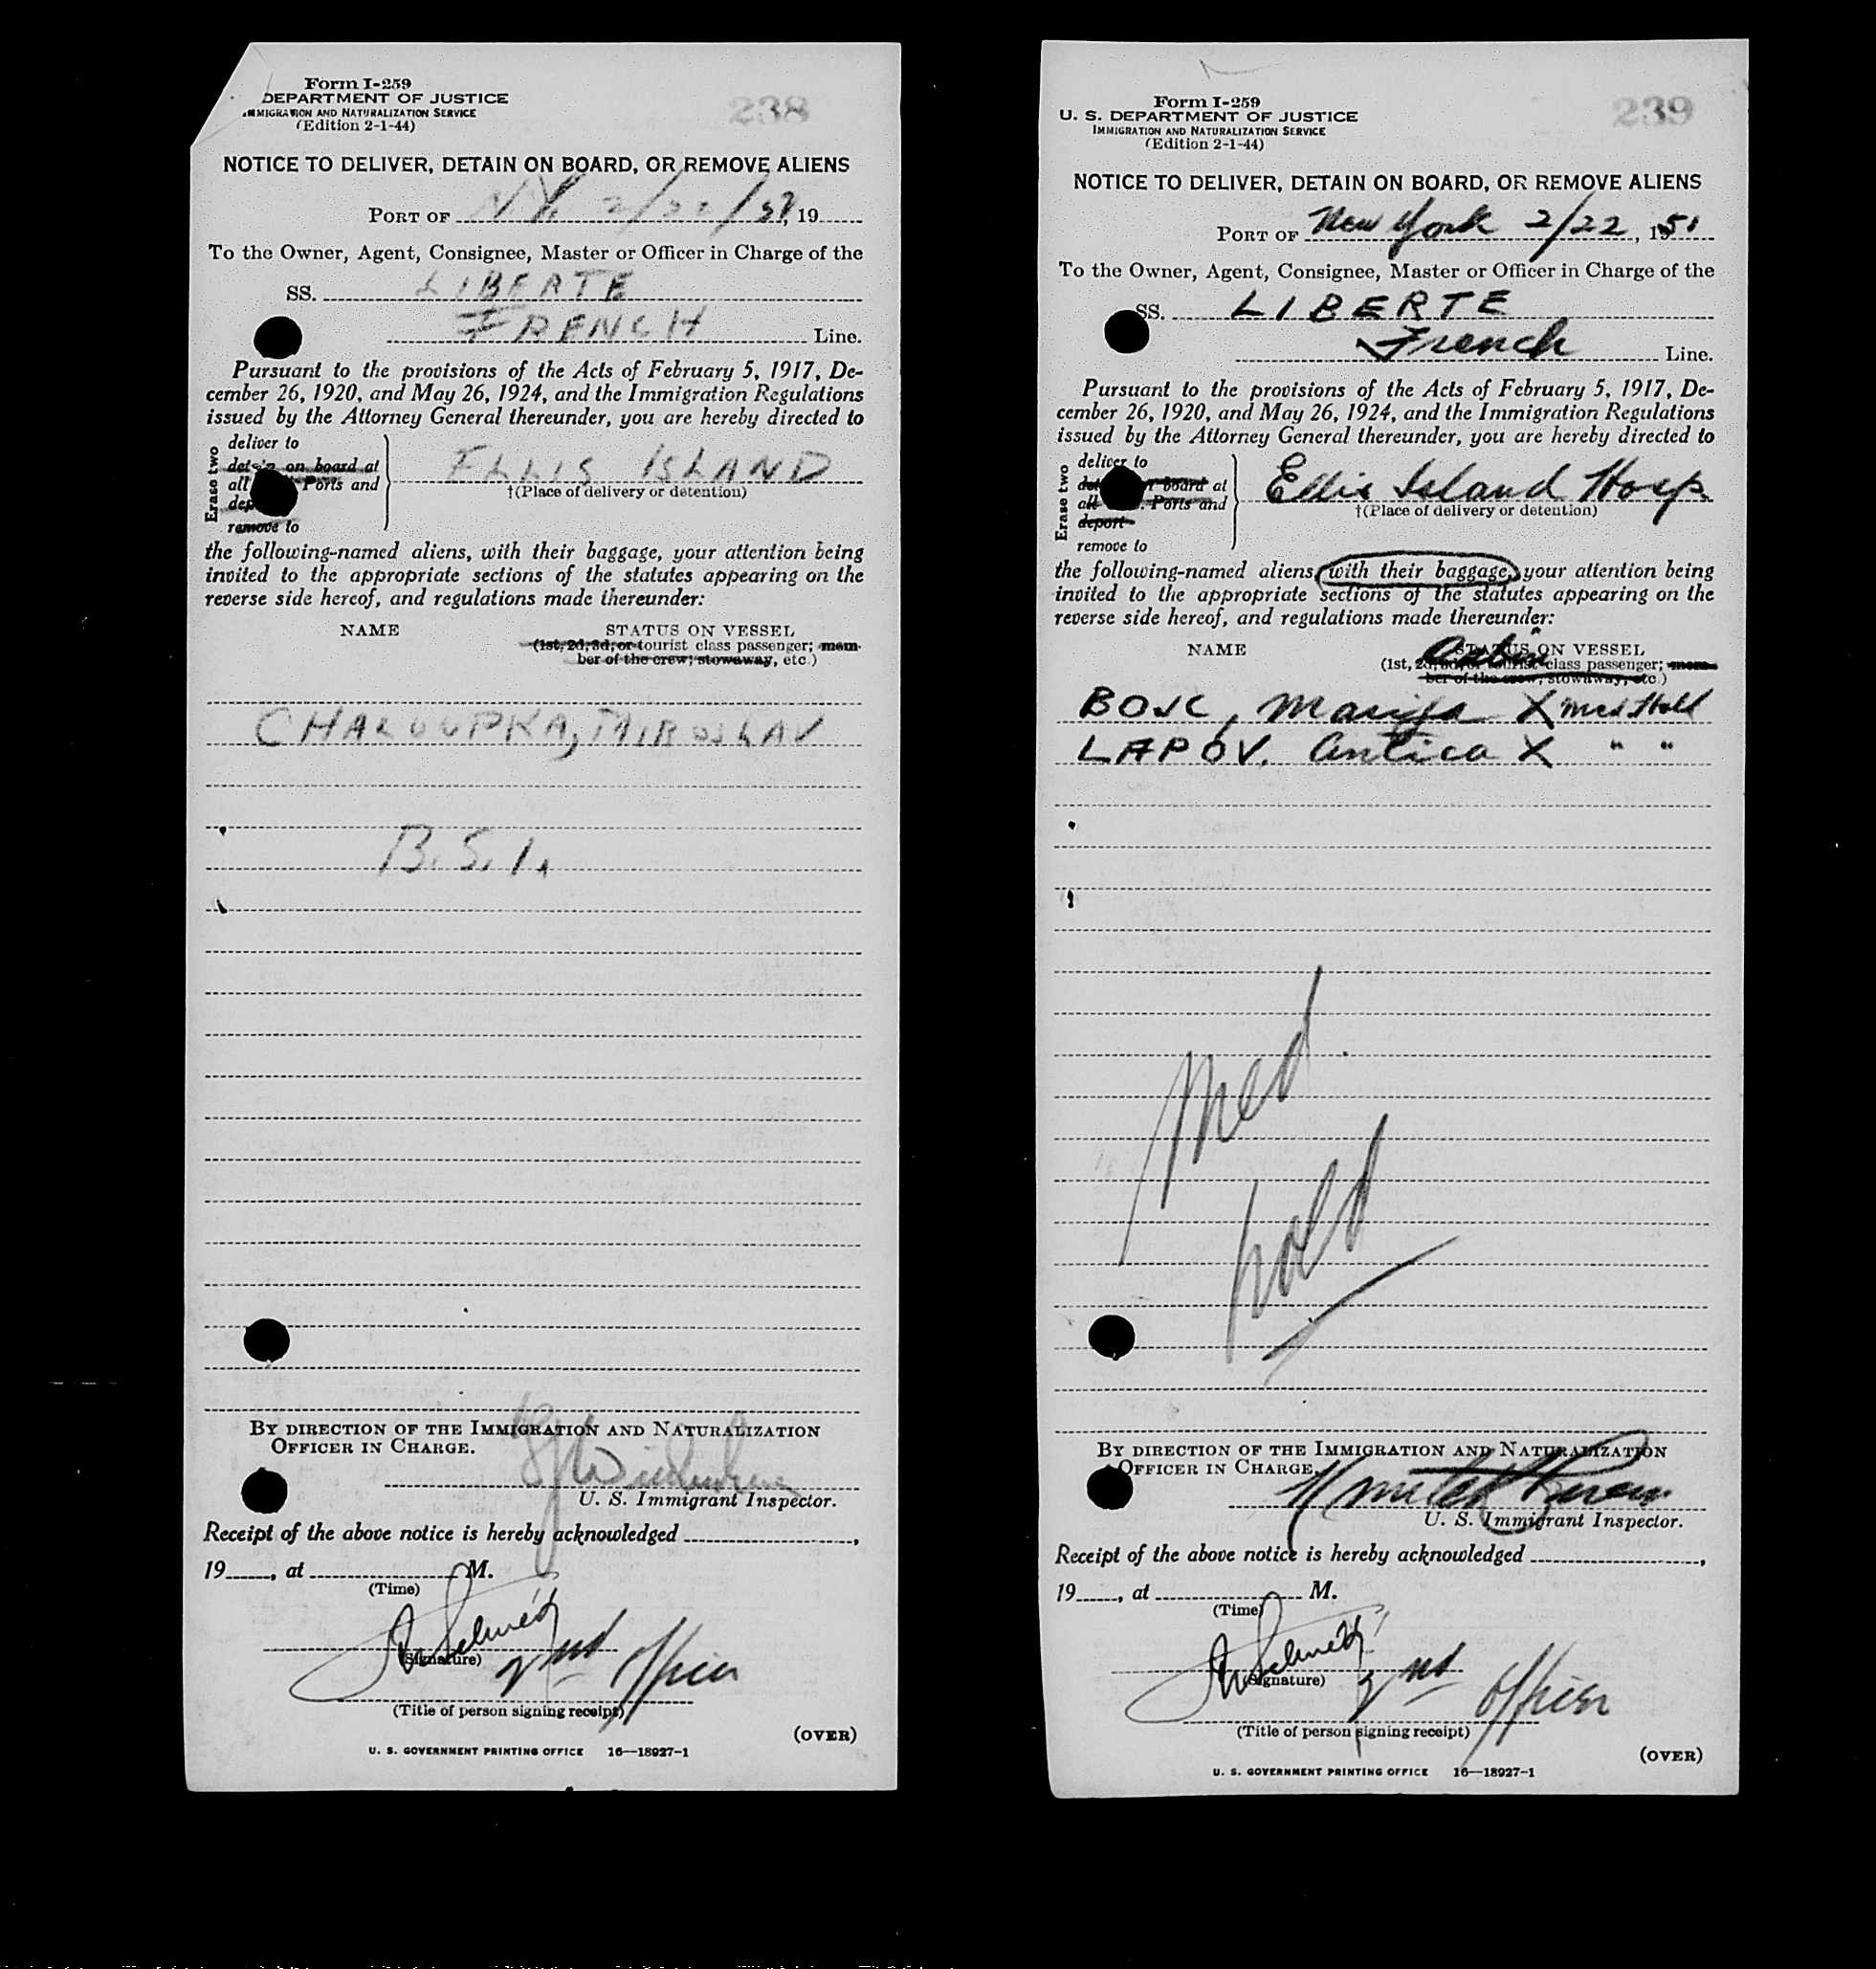 Form I-259
DEPARTMENT OF JUSTICE
IMMIGRATION AND NATURALIZATION SERVICE
(Edition 2-1-44)
238
NOTICE TO DELIVER, DETAIN ON BOARD, OR REMOVE ALIENS
PORT OF N.Y. 2/22/51, 19
To the Owner, Agent, Consignee, Master or Officer in Charge of the
SS. LIBERTE
FRENCH Line.
Pursuant to the provisions of the Acts of February 5, 1917, De-
cember 26, 1920, and May 26, 1924, and the Immigration Regulations
issued by the Attorney General thereunder, you are hereby directed to
Erase two
deliver to
detain on board at
all Ports and
dep
remove to
ELLIS ISLAND
†(Place of delivery or detention)
the following-named aliens, with their baggage, your attention being
invited to the appropriate sections of the statutes appearing on the
reverse side hereof, and regulations made thereunder:
NAME STATUS ON VESSEL
(1st, 2d, 3d, or tourist class passenger; mem-
ber of the crew; stowaway, etc.)
CHALOUPKA, MIROSLAV
B.S.I.
BY DIRECTION OF THE IMMIGRATION AND NATURALIZATION
OFFICER IN CHARGE.
U. S. Immigrant Inspector.
Receipt of the above notice is hereby acknowledged ,
19 , at M.
(Time)
(Signature)
2nd Officer
(Title of person signing receipt)
(OVER)
U. S. GOVERNMENT PRINTING OFFICE 16—18927-1
Form I-259
U. S. DEPARTMENT OF JUSTICE
IMMIGRATION AND NATURALIZATION SERVICE
(Edition 2-1-44)
239
NOTICE TO DELIVER, DETAIN ON BOARD, OR REMOVE ALIENS
PORT OF New York 2/22, 1951
To the Owner, Agent, Consignee, Master or Officer in Charge of the
SS. LIBERTE
French Line.
Pursuant to the provisions of the Acts of February 5, 1917, De-
cember 26, 1920, and May 26, 1924, and the Immigration Regulations
issued by the Attorney General thereunder, you are hereby directed to
Erase two
deliver to
board at
all Ports and
deport
remove to
Ellis Island Hosp.
†(Place of delivery or detention)
the following-named aliens, with their baggage, your attention being
invited to the appropriate sections of the statutes appearing on the
reverse side hereof, and regulations made thereunder:
Cabin
NAME STATUS ON VESSEL
(1st, 2d, 3d, or tourist class passenger; mem-
ber of the crew; stowaway, etc.)
BOJC, Marija X Med Hold
LAPOV, Antica X " "
Med.
hold
BY DIRECTION OF THE IMMIGRATION AND NATURALIZATION
OFFICER IN CHARGE.
U. S. Immigrant Inspector.
Receipt of the above notice is hereby acknowledged ,
19 , at M.
(Time)
(Signature)
2nd Officer
(Title of person signing receipt)
(OVER)
U. S. GOVERNMENT PRINTING OFFICE 16—18927-1